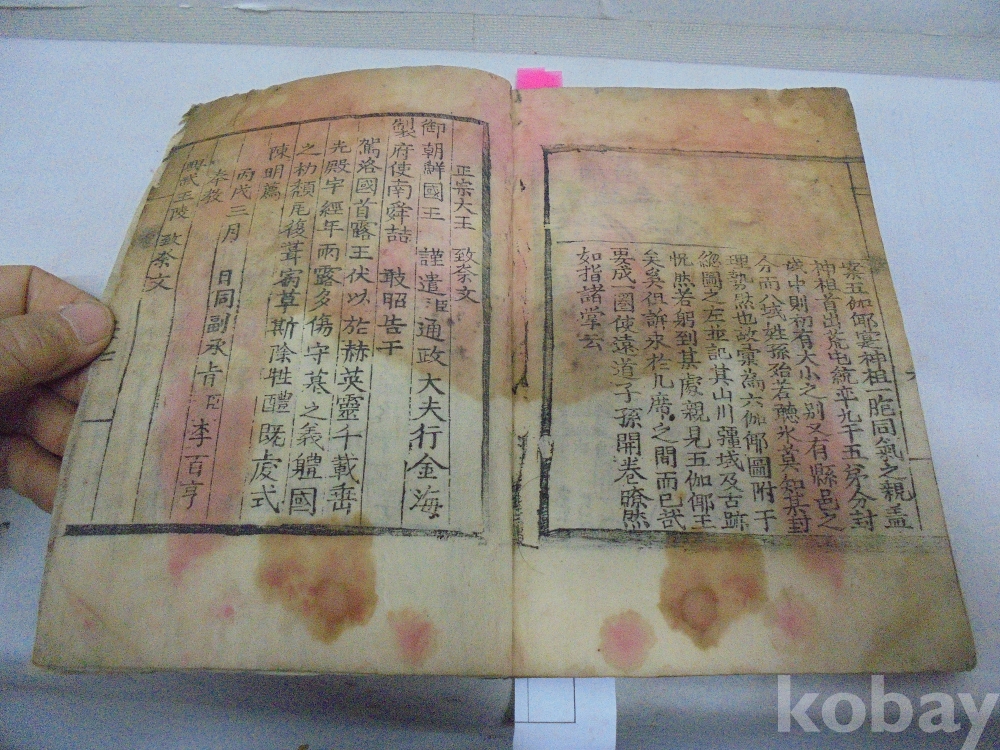 案五伽倻寔神祖胞同氣之親盖
神祖首出荒屯統率九干五弟分封
域中則初有大小之別又有縣邑之
分而公域姓孫殆若聽氷莫知其封
理勢然也故重為六伽倻圖附于
總圖之左並記其山川疆域及古蹟
怳然若躬到其處親見五伽倻王
矣矣但訴求於九廣之間而已哉
要成一圖使遠道子孫開卷瞭然
如指諸掌云
正宗大王 致祭文
御朝鮮國王 謹遣臣通政大夫行金海
製府使南舜喆 敢昭告于
駕洛國首露王伏以於赫英靈千載垂
光殿宇經年雨露多傷守墓之義體國
之礿頹瓦復葺宿草斯除牲醴既虔式
陳明薦
丙戌三月 日同副承旨臣李百亨
奉教
興武王陵 致祭文
kobay